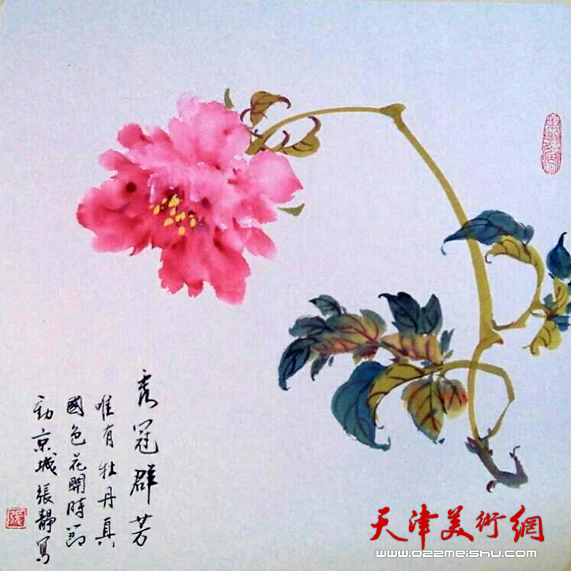 秀冠群芳
唯有牡丹真
國色花開時節
動京城張靜寫
天津美術網
www.022meishu.com